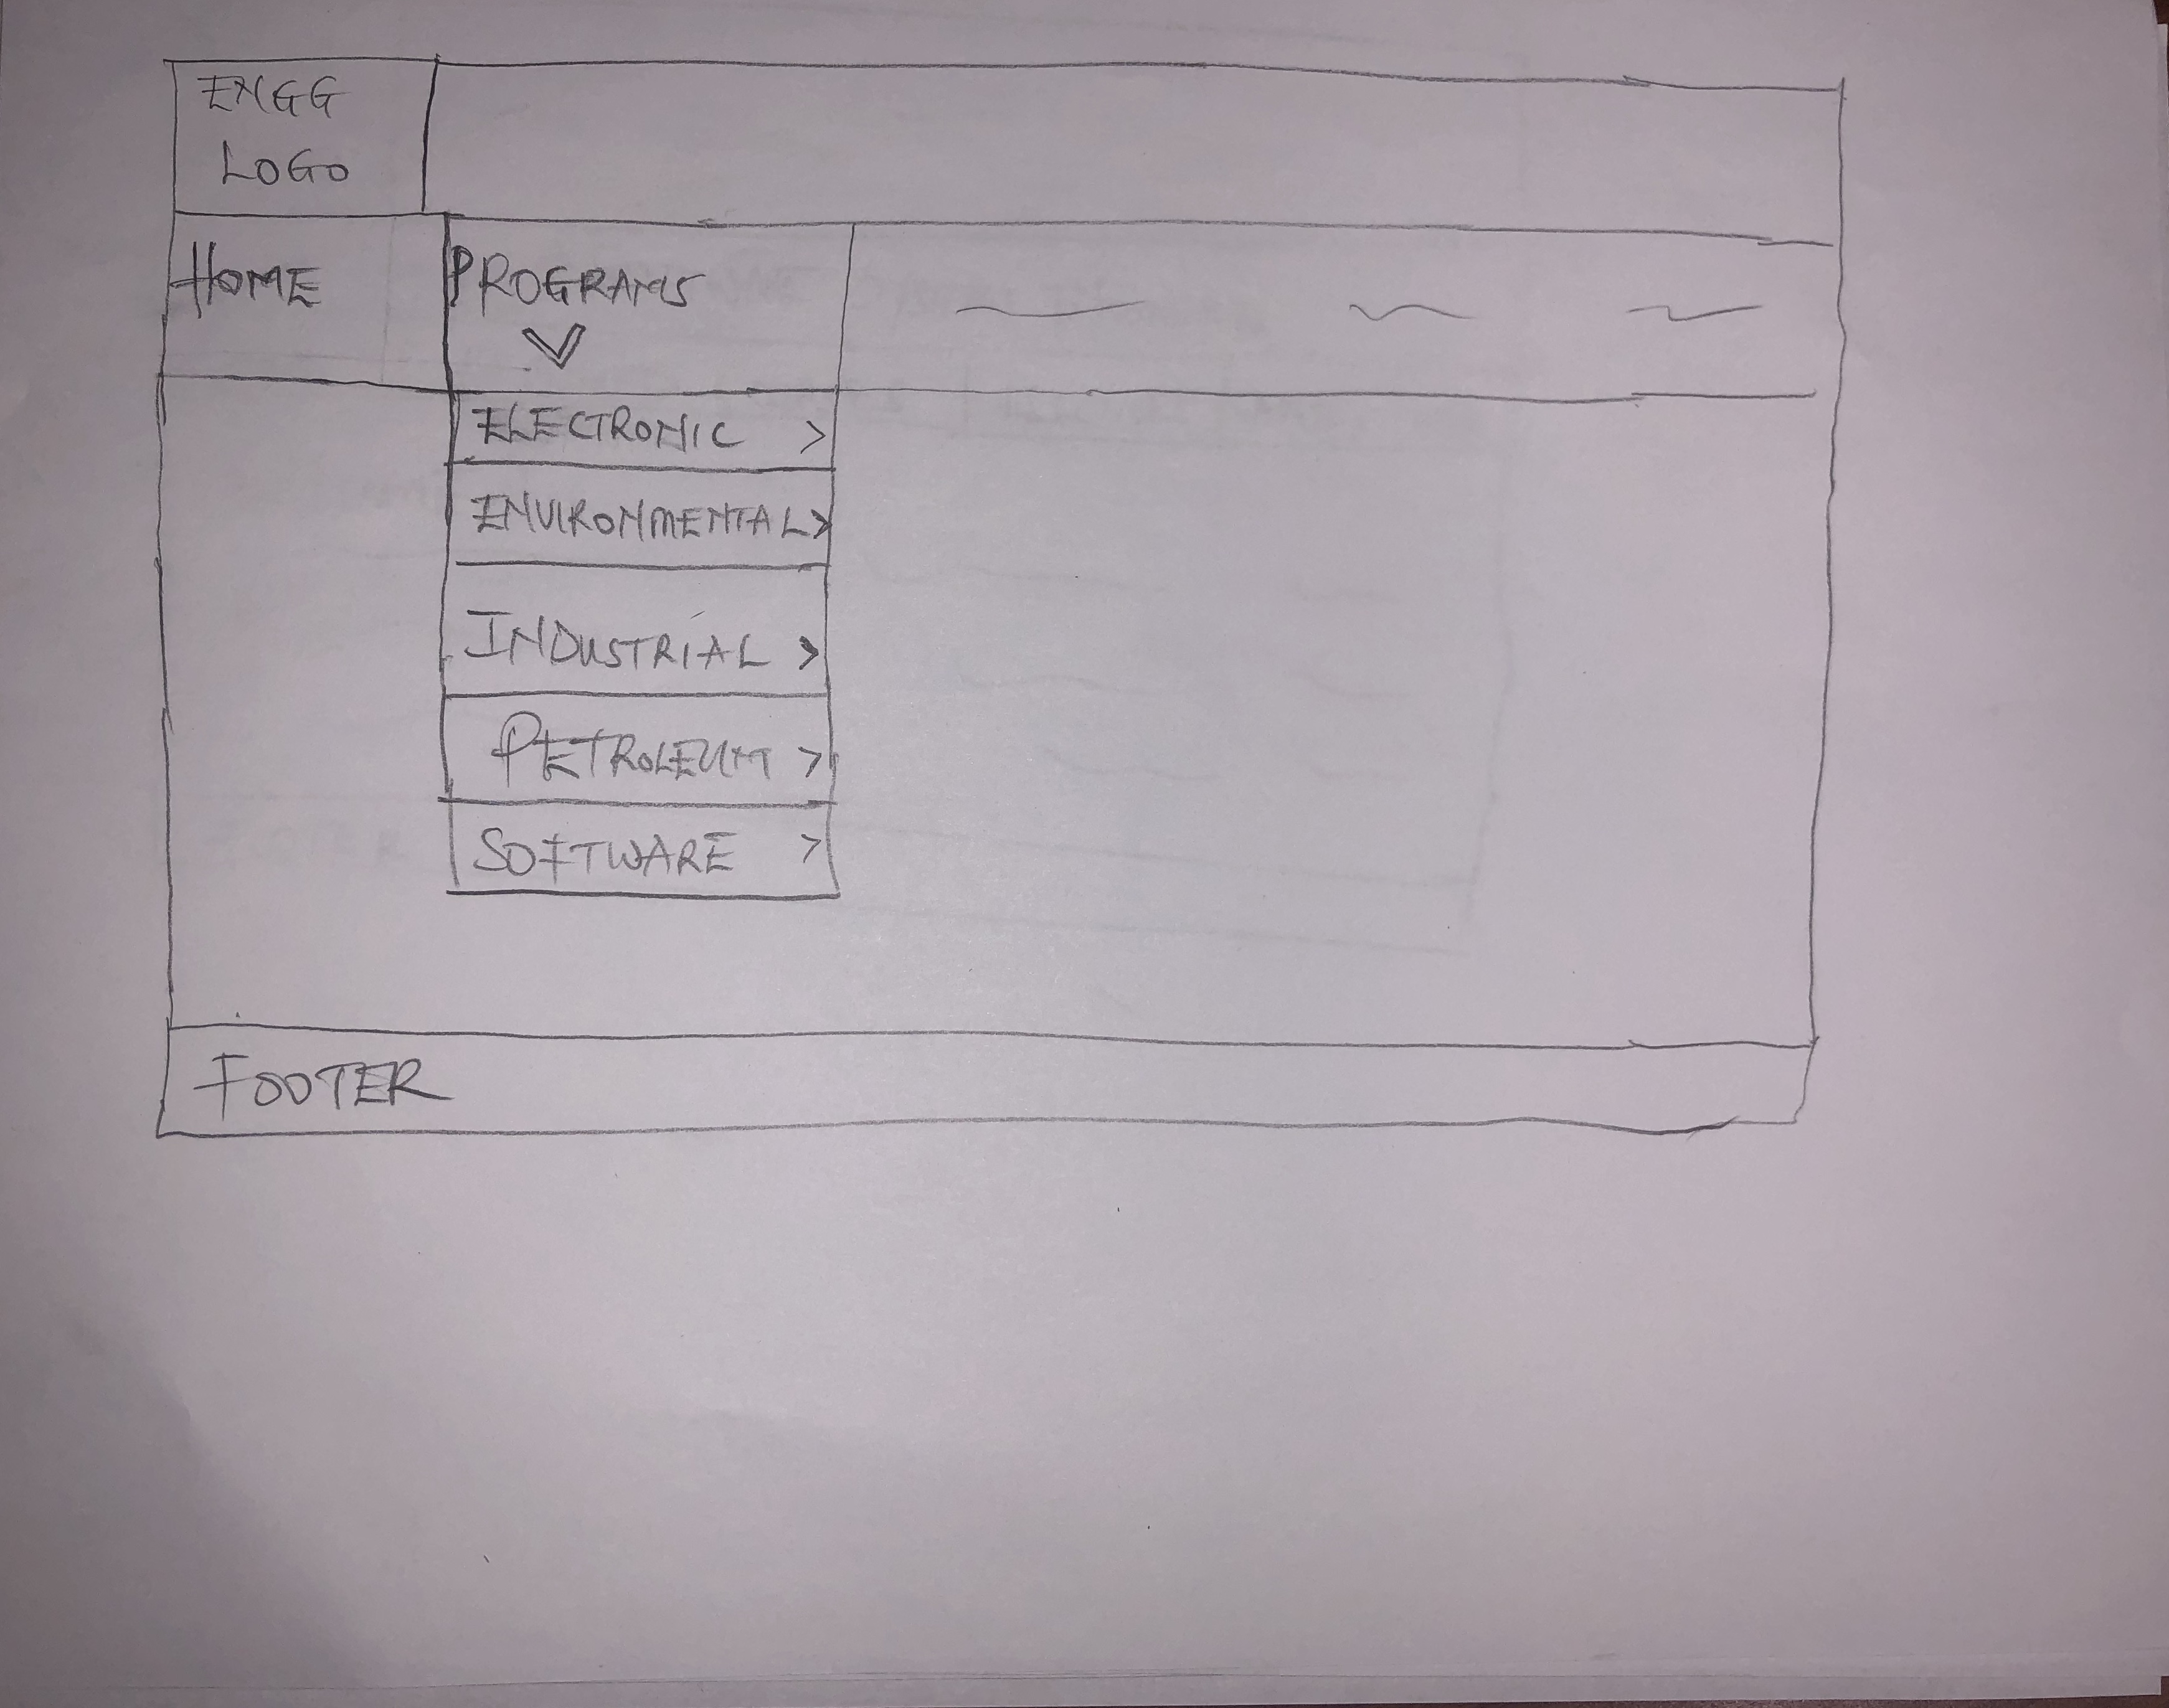 ENGG
LOGO
HOME
PROGRAMS
ELECTRONIC >
ENVIRONMENTAL >
INDUSTRIAL >
PETROLEUM >
SOFTWARE >
FOOTER